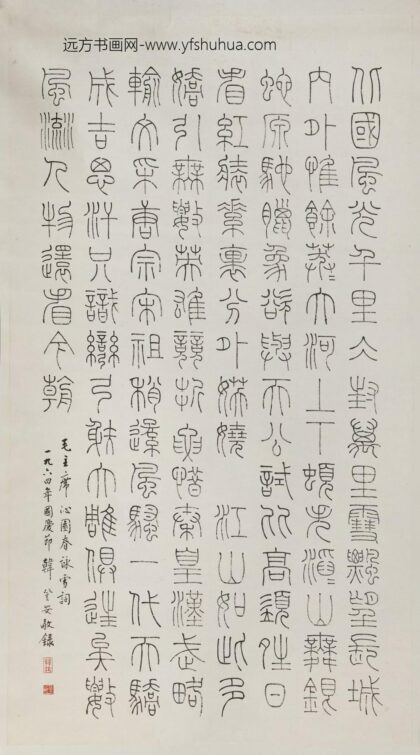 远方书画网-www.yfshuhua.com
北國風光千里冰封萬里雪飄望長城
内外惟餘莽〻大河上下頓失滔〻山舞銀
蛇原馳臘象欲與天公試比高須晴日
看紅裝素裹分外妖嬈 江山如此多
嬌引無數英雄競折腰惜秦皇漢武略
輸文采唐宗宋祖稍遜風騷一代天驕
成吉思汗只識彎弓射大雕俱往矣數
風流人物還看今朝
毛主席沁園春詠雪詞
一九六四年國慶節韓登安敬錄